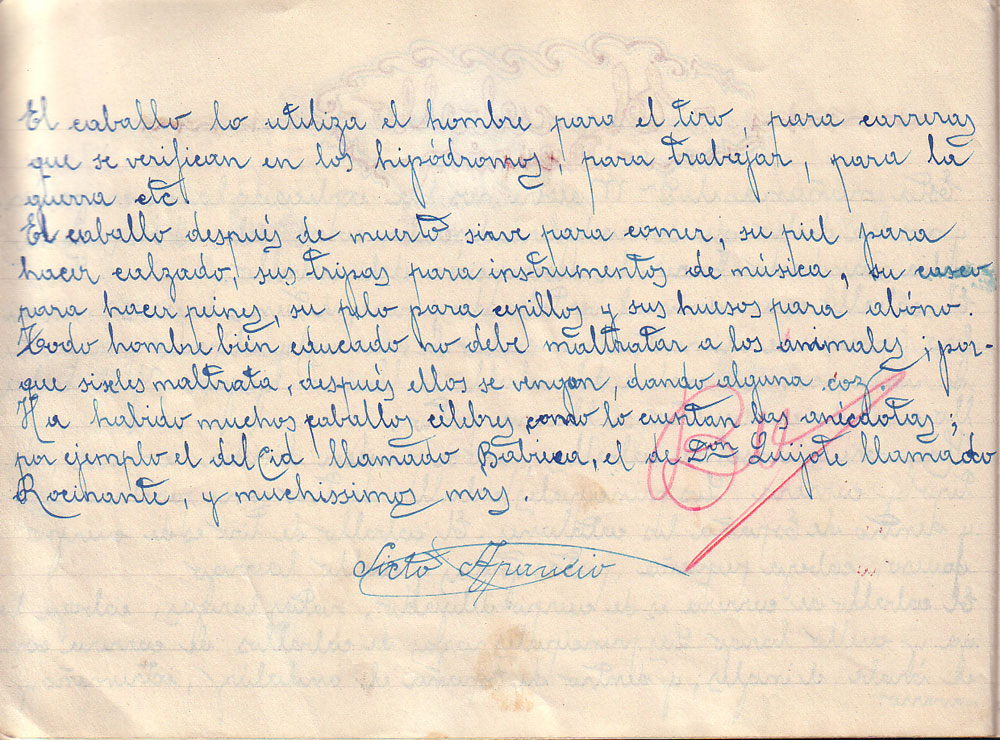 El caballo lo utiliza el hombre para el tiro, para carreras
que se verifican en los hipódromos, para trabajar, para la
guerra etc.
El caballo después de muerto sirve para comer, su piel para
hacer calzado, sus tripas para instrumentos de música, su casco
para hacer peines, su pelo para cepillos y sus huesos para abóno.
Todo hombre bién educado no debe maltratar a los animales ; por-
que si se les maltrata, después ellos se vengan, dando alguna coz.
Ha habido muchos caballos célebres como lo cuentan las anécdotas,
por ejemplo el del Cid llamado Babieca, el de Don Quijote llamado
Rocinante, y muchissimos mas.
Sixto Aparicio